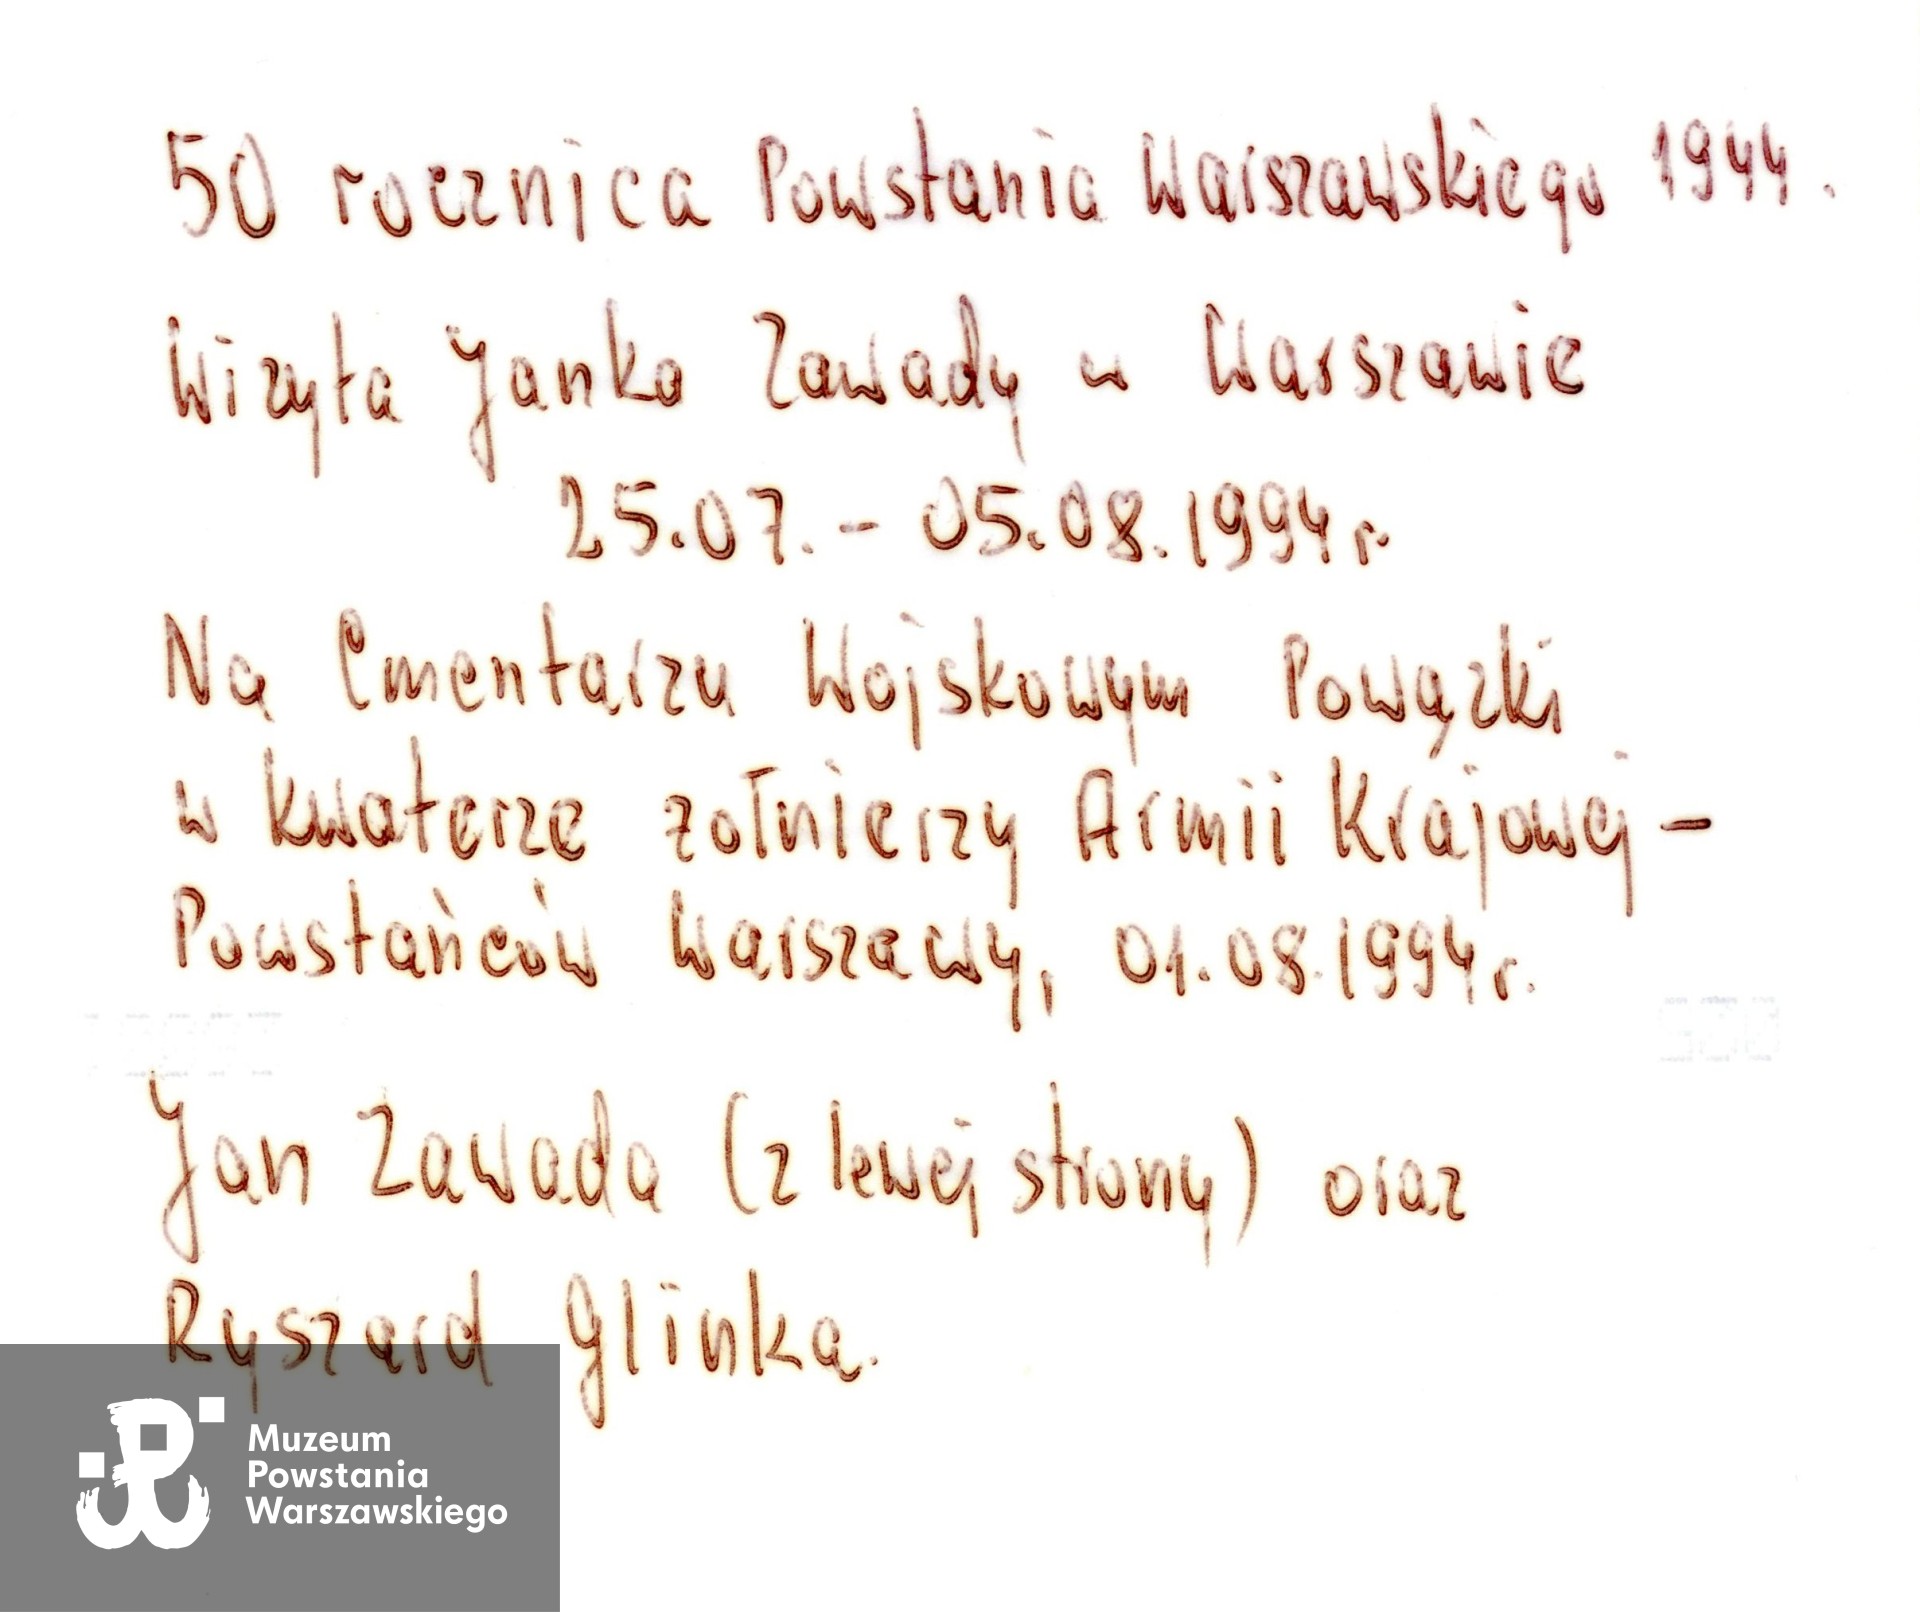 50 rocznica Powstania Warszawskiego 1944.
Wizyta Janka Zawady w Warszawie
25.07. - 05.08.1994r.
Na Cmentarzu Wojskowym Powązki
w kwaterze żołnierzy Armii Krajowej -
Powstańców Warszawy, 01.08.1994r.
Jan Zawada (z lewej strony) oraz
Ryszard Glinka.
Muzeum
Powstania
Warszawskiego